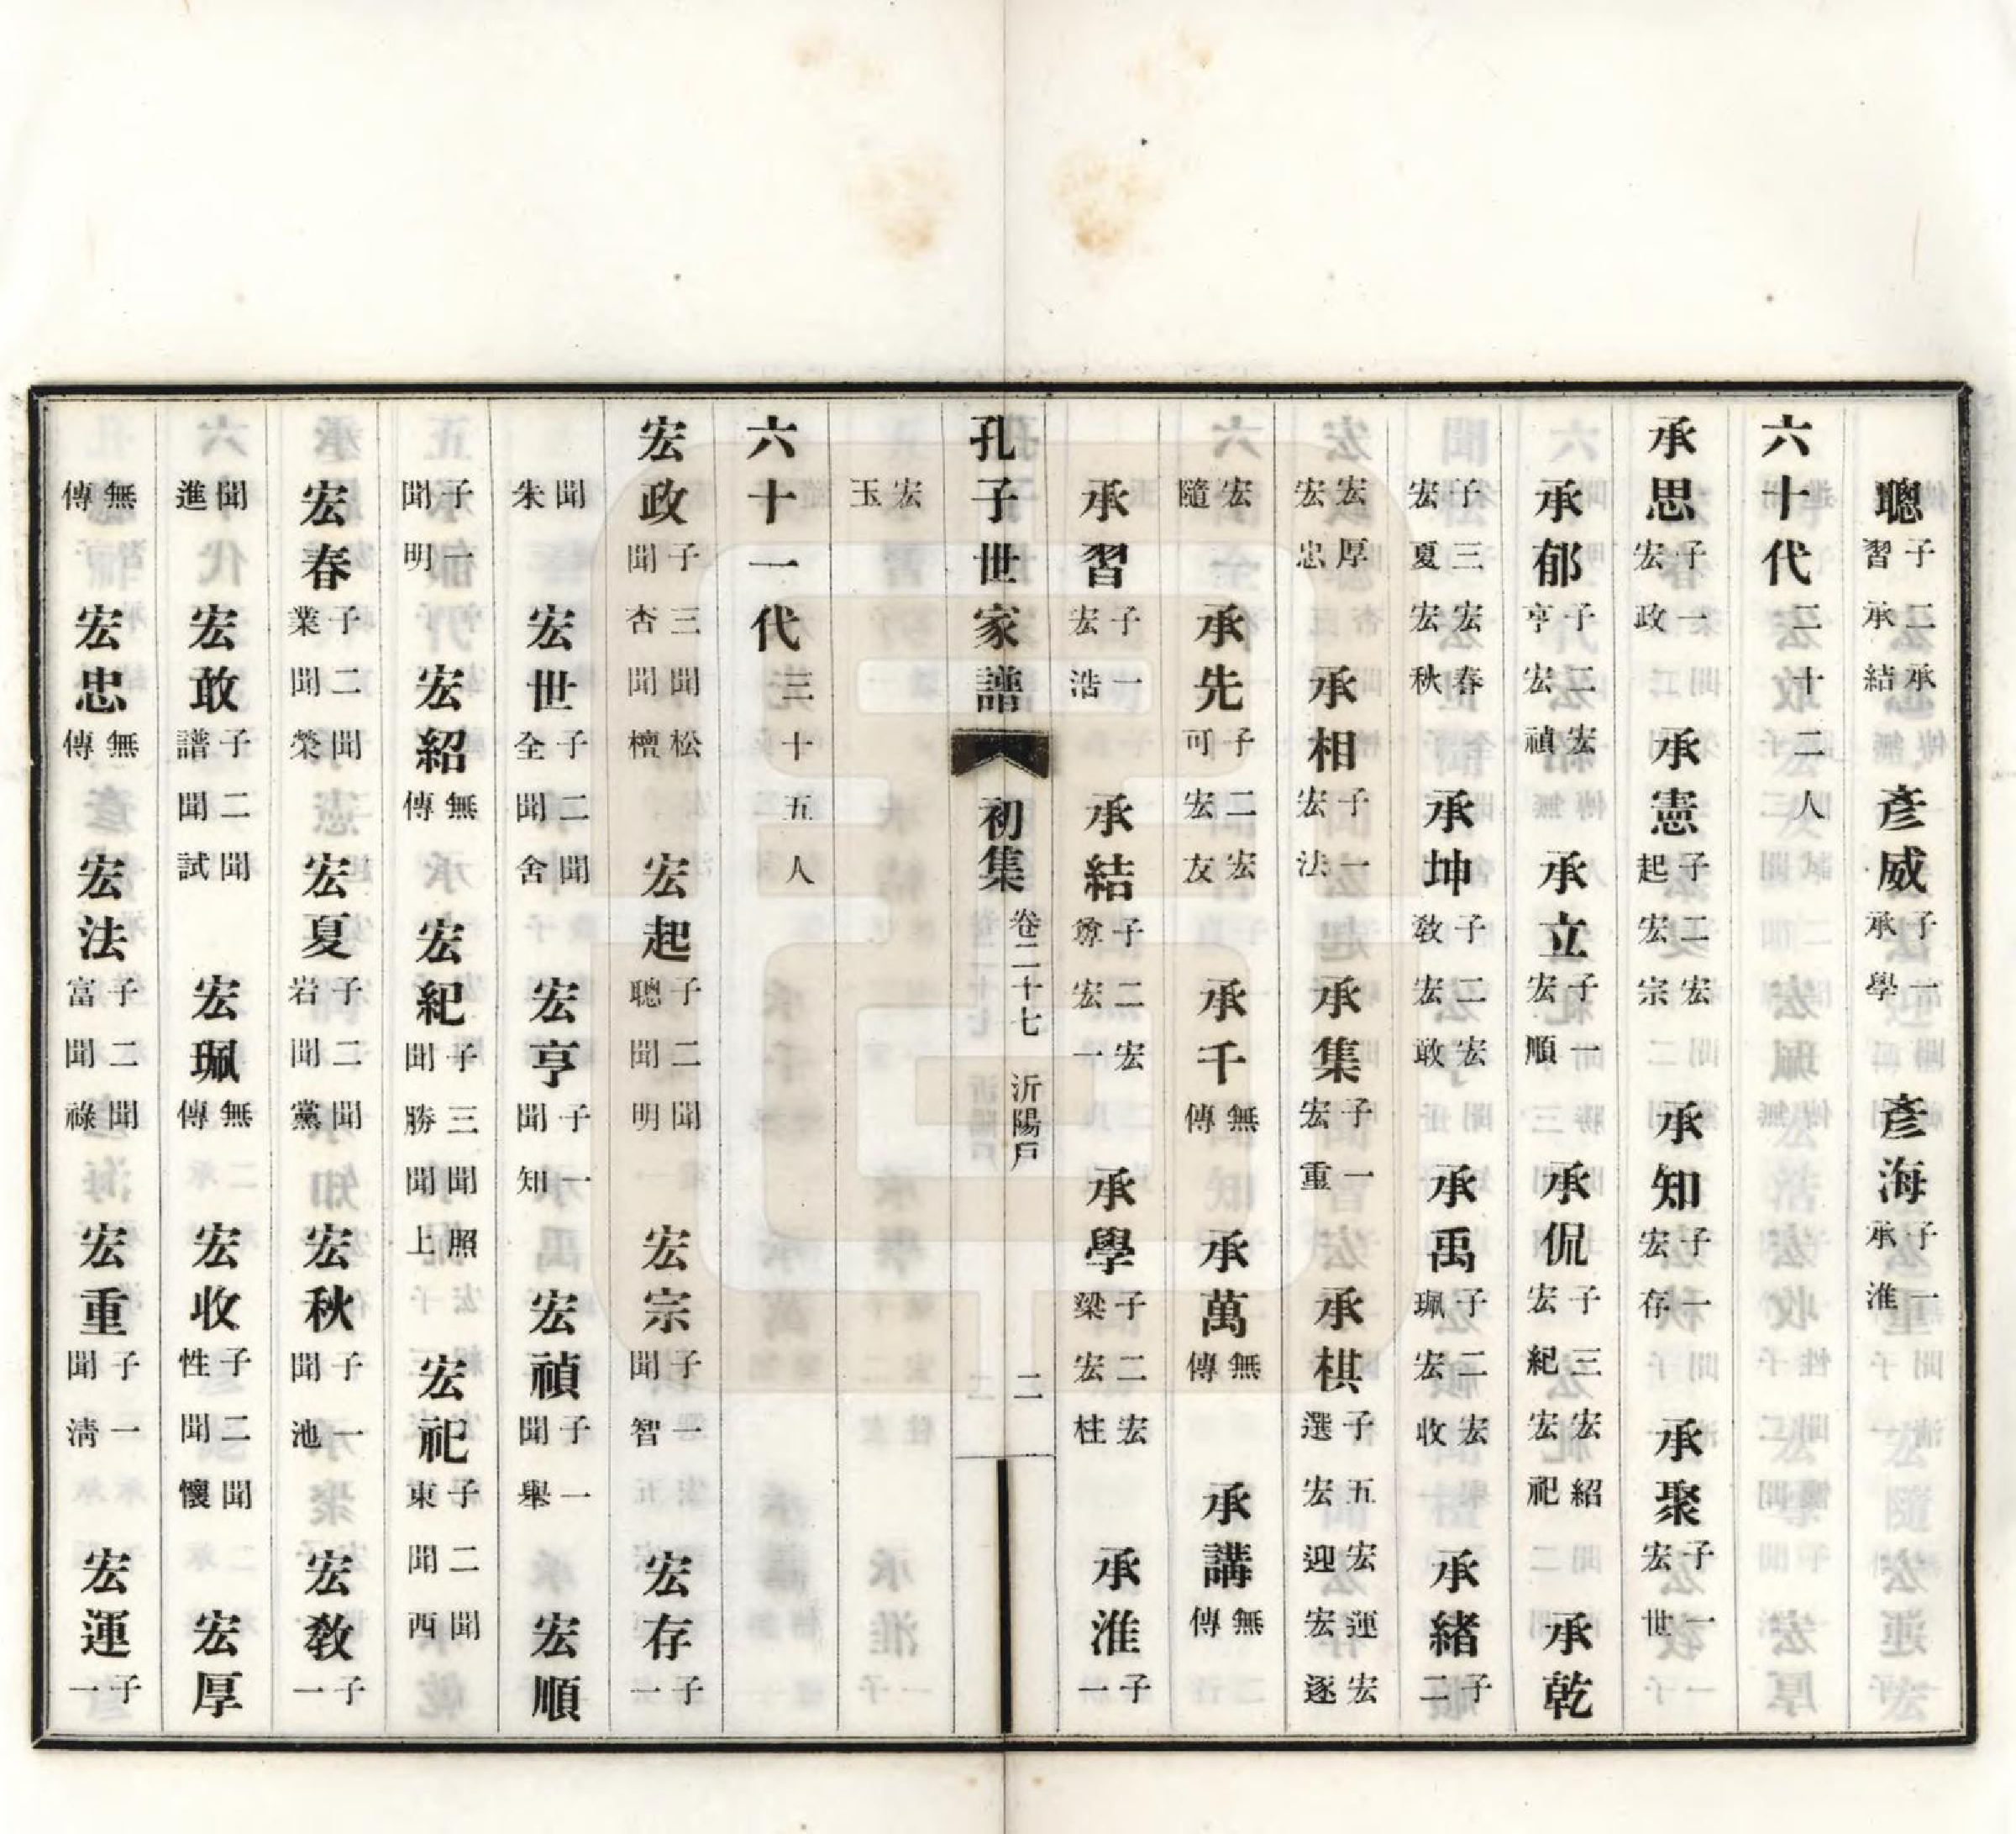 聰子二承習承結 彥威子一承學 彥海子一承淮
六十代二十二人
承思子一宏政 承憲子二宏起宏宗 承知子一宏存 承聚子一宏世
承郁子二宏亨宏禎 承立子一宏順 承侃子三宏紹宏紀宏祀 承乾
子三宏春宏夏宏秋 承坤子二宏敎宏敢 承禹子二宏珮宏收 承緒子二
宏厚宏忠 承相子一宏法 承集子一宏重 承棋子五宏運宏選宏迎宏逐
宏隨 承先子二宏可宏友 承千無傳 承萬無傳 承講無傳
承習子一宏浩 承結子二宏尊宏一 承學子二宏梁宏桂 承淮子一
孔子世家譜 初集 卷二十七 沂陽戶 二
宏玉
六十一代三十五人
宏政子三聞松聞杏聞檀 宏起子二聞聰聞明 宏宗子一聞智 宏存子一
聞朱 宏世子二聞全聞舍 宏亨子一聞知 宏禎子一聞舉 宏順
子一聞明 宏紹無傳 宏紀子三聞照聞勝聞上 宏祀子二聞東聞西
宏春子二聞業聞榮 宏夏子二聞岩聞黨 宏秋子一聞池 宏敎子一
聞進 宏敢子二聞譜聞試 宏珮無傳 宏收子二聞性聞懷 宏厚
無傳 宏忠無傳 宏法子二聞富聞祿 宏重子一聞清 宏運子一